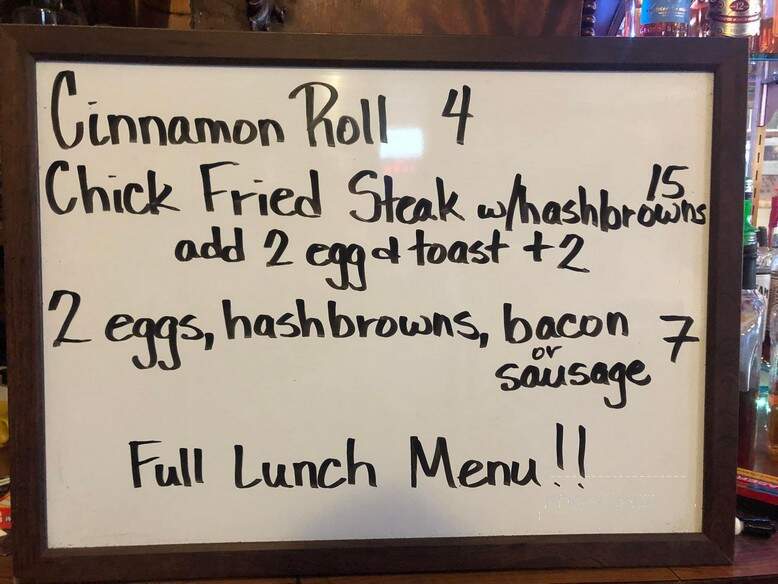 Cinnamon Roll 4
Chick Fried Steak w/hashbrowns 15
add 2 egg & toast +2
2 eggs, hashbrowns, bacon 7
or
sausage
Full Lunch Menu!!